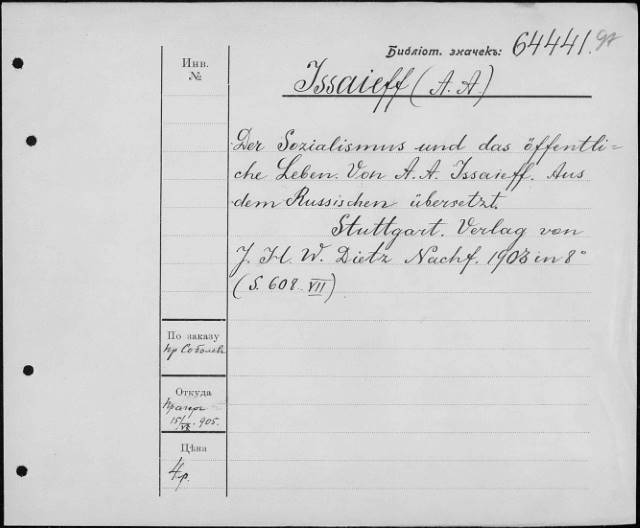 Библіот. значекъ: 64441.
Инв.
№
Issaieff (A. A.)
Der Sozialismus und das öffentli=
che Leben. Von A. A. Issaieff. Aus
dem Russischen übersetzt.
Stuttgart. Verlag von
J. H. W. Dietz Nachf. 1903 in 8°
(S. 608 VII)
По заказу
пр Соболев
Откуда
Прагеръ
15/VI 905.
Цѣна
4 р.